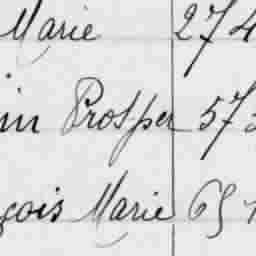 Marie 274
in Prosper 573
çois Marie 691